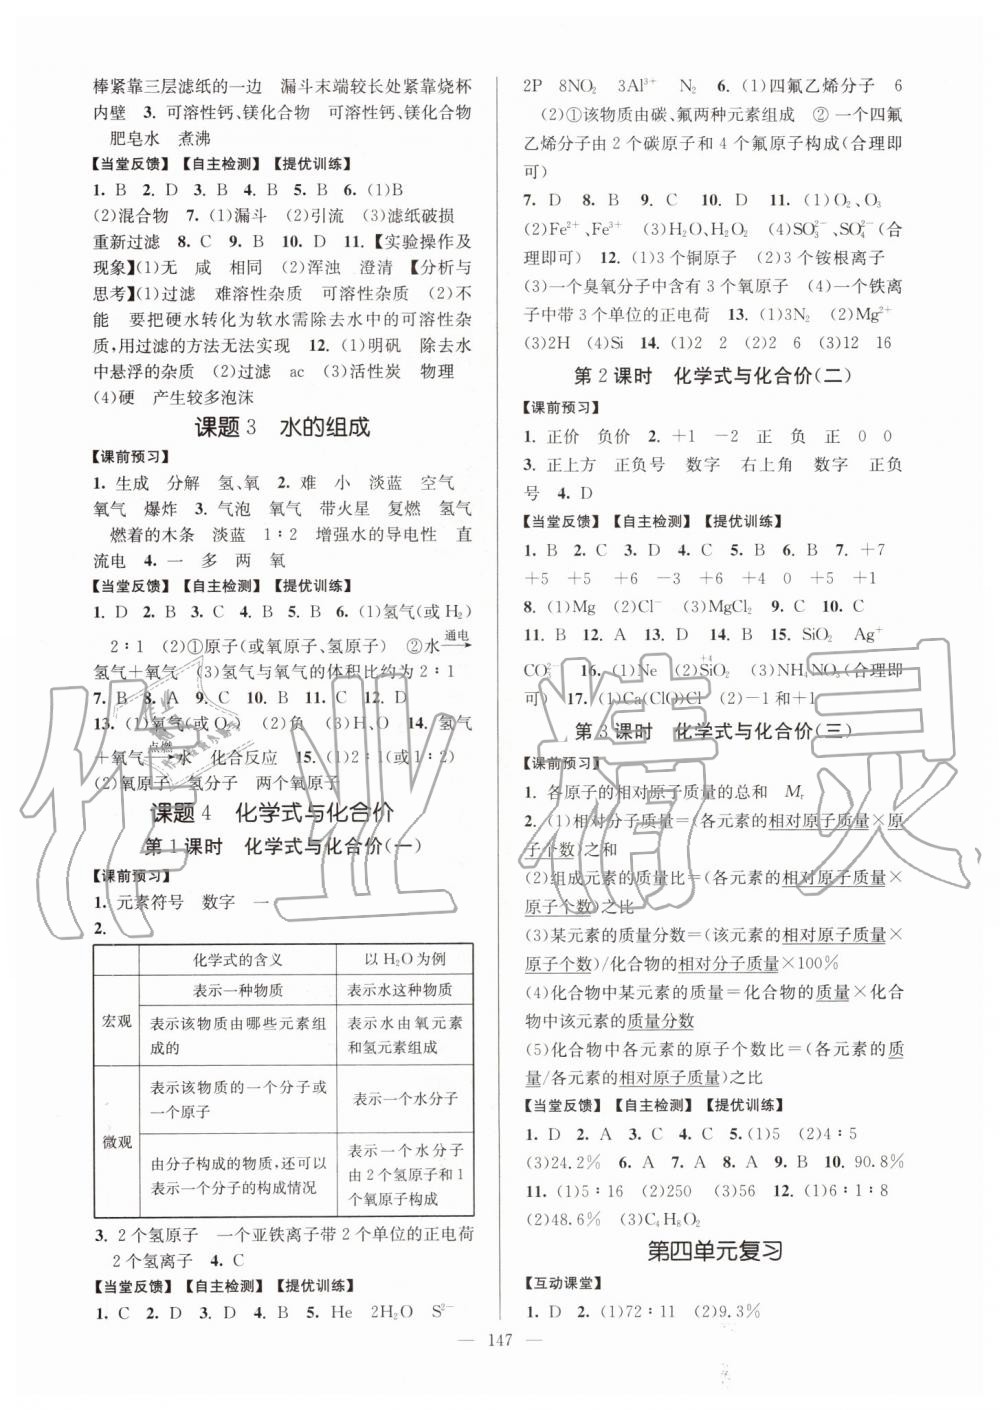 棒紧靠三层滤纸的一边　漏斗末端较长处紧靠烧杯
内壁　3. 可溶性钙、镁化合物　可溶性钙、镁化合物
肥皂水　煮沸
【当堂反馈】【自主检测】【提优训练】
1. B　2. D　3. B　4. B　5. B　6. (1)B
(2)混合物　7. (1)漏斗　(2)引流　(3)滤纸破损
重新过滤　8. C　9. B　10. D　11.【实验操作及
现象】(1)无　咸　相同　(2)浑浊　澄清【分析与
思考】(1)过滤　难溶性杂质　可溶性杂质　(2)不
能　要把硬水转化为软水需除去水中的可溶性杂
质,用过滤的方法无法实现　12. (1)明矾　除去水
中悬浮的杂质　(2)过滤　ac　(3)活性炭　物理
(4)硬　产生较多泡沫
课题 3　水的组成
【课前预习】
1. 生成　分解　氢、氧　2. 难　小　淡蓝　空气
氧气　爆炸　3. 气泡　氧气　带火星　复燃　氢气
燃着的木条　淡蓝　1∶2　增强水的导电性　直
流电　4. 一　多　两　氧
【当堂反馈】【自主检测】【提优训练】
1. D　2. B　3. C　4. B　5. B　6. (1)氢气(或 H₂)
2∶1　(2)①原子(或氧原子、氢原子)　②水 通电→
氢气＋氧气　(3)氢气与氧气的体积比约为 2∶1
7. B　8. A　9. C　10. B　11. C　12. D
13. (1)氧气(或 O₂)　(2)负　(3)H、O　14. 氢气
＋氧气 点燃→ 水　化合反应　15. (1)2∶1　(2)1∶8
(2)氧原子　氢分子　两个氧原子
课题 4　化学式与化合价
第 1 课时　化学式与化合价(一)
【课前预习】
1. 元素符号　数字　一
2.
化学式的含义　以 H₂O 为例
宏观　表示一种物质　表示水这种物质
表示该物质由哪些元素组成的　表示水由氧元素和氢元素组成
微观　表示该物质的一个分子或一个原子　表示一个水分子
由分子构成的物质,还可以表示一个分子的构成情况　表示一个水分子由 2 个氢原子和 1 个氧原子构成
3. 2 个氢原子　一个亚铁离子带 2 个单位的正电荷
2 个氢离子　4. C
【当堂反馈】【自主检测】【提优训练】
1. C　2. D　3. D　4. B　5. He　2H₂O　S²⁻
2P　8NO₂　3Al³⁺　N₂　6. (1)四氟乙烯分子　6
(2)①该物质由碳、氟两种元素组成　② 一个四氟
乙烯分子由 2 个碳原子和 4 个氟原子构成(合理即
可)
7. D　8. B　9. C　10. D　11. (1)O₂、O₃
(2)Fe²⁺、Fe³⁺　(3)H₂O、H₂O₂　(4)SO₃²⁻、SO₄²⁻(合
理即可)　12. (1)3 个铜原子　(2)3 个铵根离子
(3)一个臭氧分子中含有 3 个氧原子　(4)一个铁离
子中带 3 个单位的正电荷　13. (1)3N₂　(2)Mg²⁺
(3)2H　(4)Si　14. (1)2　2　(2)2　6　(3)12　16
第 2 课时　化学式与化合价(二)
【课前预习】
1. 正价　负价　2. ＋1　－2　正　负　正　0　0
3. 正上方　正负号　数字　右上角　数字　正负
号　4. D
【当堂反馈】【自主检测】【提优训练】
1. B　2. C　3. C　4. C　5. B　6. B　7. ＋7
＋5　＋5　－3　＋6　＋4　＋5　＋1
8. (1)Mg　(2)Cl⁻　(3)MgCl₂　9. C　10. C
11. B　12. D　13. A　14. B　15. SiO₂　Ag⁺
CO₃²⁻　16. (1)Ne　(2)SiO₂(＋4)　(3)NH₄NO₃(合理即
可)　17. (1)Ca(ClO)Cl　(2)－1 和＋1
第 3 课时　化学式与化合价(三)
【课前预习】
1. 各原子的相对原子质量的总和　Mᵣ
2. (1)相对分子质量＝(各元素的相对原子质量×原
子个数)之和
(2)组成元素的质量比＝(各元素的相对原子质量×
原子个数)之比
(3)某元素的质量分数＝(该元素的相对原子质量×
原子个数)/化合物的相对分子质量×100%
(4)化合物中某元素的质量＝化合物的质量×化合
物中该元素的质量分数
(5)化合物中各元素的原子个数比＝(各元素的质
量/各元素的相对原子质量)之比
【当堂反馈】【自主检测】【提优训练】
1. D　2. A　3. C　4. C　5. (1)5　(2)4∶5
(3)24.2%　6. A　7. A　8. A　9. B　10. 90.8%
11. (1)5∶16　(2)250　(3)56　12. (1)6∶1∶8
(2)48.6%　(3)C₄H₈O₂
第四单元复习
【互动课堂】
1. D　2. (1)72∶11　(2)9.3%
— 147 —
作业精灵